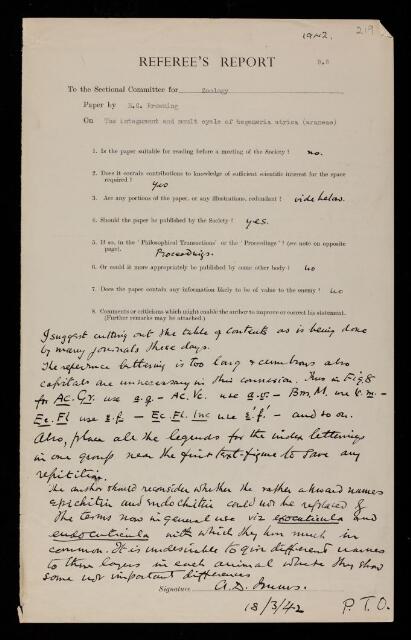 1942.
219
REFEREE'S REPORT
To the Sectional Committee for Zoology
Paper by H.C. Browning
On The integument and moult cycle of tegeneria atrica (araneae)
1. Is the paper suitable for reading before a meeting of the Society? no.
2. Does it contain contributions to knowledge of sufficient scientific interest for the space
required?
yes
3. Are any portions of the paper, or any illustrations, redundant? vide below.
4. Should the paper be published by the Society? yes.
5. If so, in the 'Philosophical Transactions' or the 'Proceedings'? (see note on opposite
page).
Proceedings.
6. Or could it more appropriately be published by some other body? no
7. Does the paper contain any information likely to be of value to the enemy? no
8. Comments or criticisms which might enable the author to improve or correct his statement.
(Further remarks may be attached.)
I suggest cutting out the table of contents as is being done
by many journals these days.
The reference lettering is too long & cumbrous also
capitals are unnecessary in this connexion. Thus in Fig. 8
for Ac. Gr. use a.g. – Ac. Vc. use a.v. – Bm. M. use b.m. –
Ec. Fl use e.f. – Ec. Fl. Inc use – and so on.
Also, place all the legends for the index letterings
in one group near the first text-figure to save any
repitition.
The author should reconsider whether the rather awkward names
epichitin and endochitin could not be replaced by
the terms now in general use viz exocuticula and
endocuticula with which they have much in
common. It is undesirable to give different names
to these layers in each animal where they show
some not important differences
Signature A.D. Imms.
18/3/42
P.T.O.